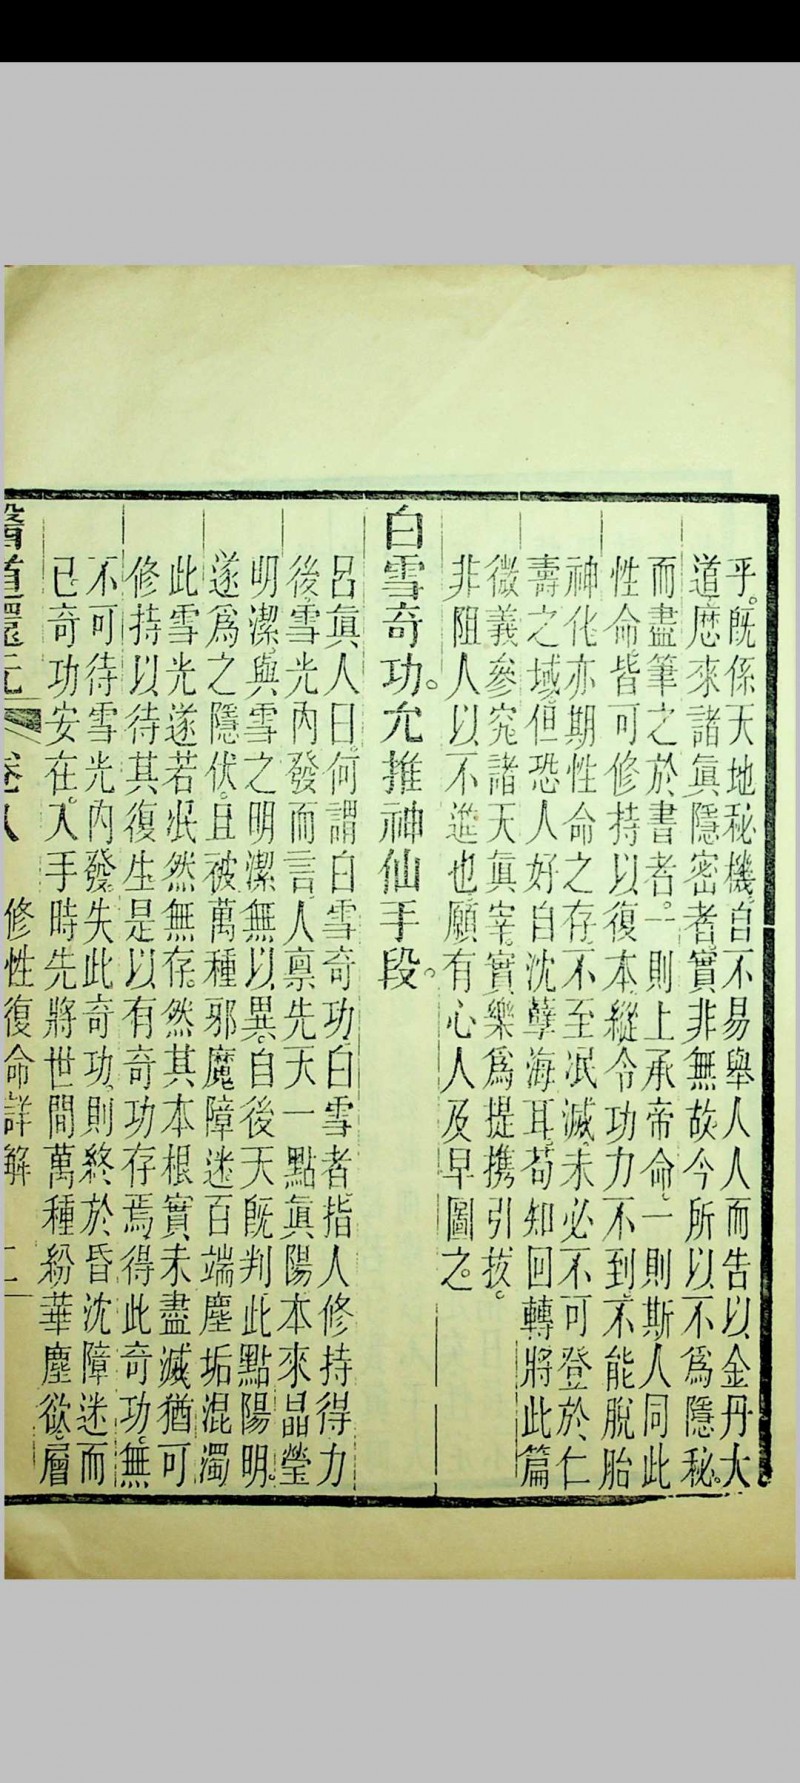 乎。旣係天地秘機。自不易舉人人而告以金丹大
道。歷來諸眞隱密者。實非無故。今所以不爲隱秘。
而盡筆之於書者。一則上承帝命。一則斯人同此
性命。皆可修持以復本。縱令功力不到。不能脫胎
神化。亦期性命之存。不至泯滅。未必不可登於仁
壽之域。但恐人好自沈孽海耳。苟知回轉。將此篇
微義參究。諸天眞宰。實樂爲提携引拔。
非阻人以不進也。願有心人及早圖之。
白雪奇功。允推神仙手段。
呂眞人曰。何謂白雪奇功。白雪者。指人修持得力
後。雪光內發而言。人禀先天一點眞陽。本來晶瑩
明潔。與雪之明潔無以異。自後天旣判。此點陽明。
遂爲之隱伏。且被萬種邪魔障迷。百端塵垢混濁
此雪光遂若泯然無存。然其本根實未盡滅。猶可
修持以待其復生。是以有奇功存焉。得此奇功。無
不可待雪光內發。失此奇功。則終於昏沈障迷而
已。奇功安在。入手時先將世間萬種紛華塵欲。層
醫道還元 卷八 修性復命詳解 二